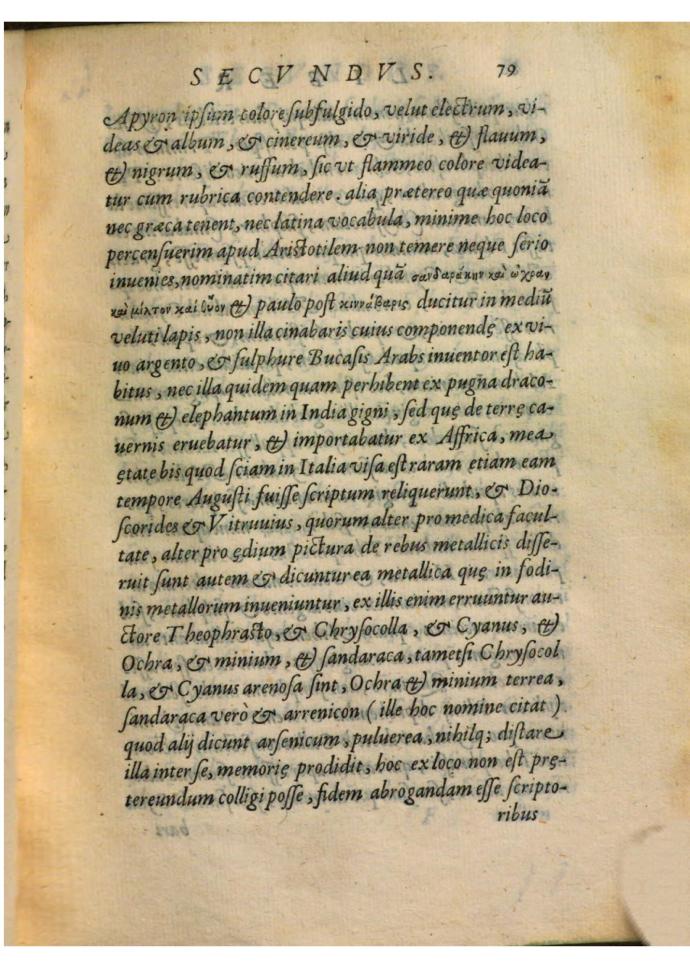 SECVNDVS. 79
Apyron ipsum colore subfulgido, velut electrum, vi-
deas & album, & cinereum, & viride, & flauum,
& nigrum, & ruffum, sic vt flammeo colore videa-
tur cum rubrica contendere. alia prætereo quæ quoniã
nec græca tenent, nec latina vocabula, minime hoc loco
percensuerim apud Aristotilem non temere neque serio
inuenies, nominatim citari aliud quã σανδαράκην καὶ ὤχραν
καὶ μίλτον καὶ θῦον & paulo post κιννάβαρις ducitur in mediũ
veluti lapis, non illa cinabaris cuius componendę ex vi-
uo argento, & sulphure Bucasis Arabs inuentor est ha-
bitus, nec illa quidem quam perhibent ex pugna draco-
num & elephantum in India gigni, sed quę de terrę ca-
uernis eruebatur, & importabatur ex Affrica, mea
ętate bis quod sciam in Italia visa est raram etiam eam
tempore Augusti fuisse scriptum reliquerunt, & Dio-
scorides & Vitruuius, quorum alter pro medica facul-
tate, alter pro ędium pictura de rebus metallicis disse-
ruit sunt autem & dicuntur ea metallica quę in fodi-
nis metallorum inueniuntur, ex illis enim erruuntur au-
ctore Theophrasto, & Chrysocolla, & Cyanus, &
Ochra, & minium, & sandaraca, tametsi Chrysocol
la, & Cyanus arenosa sint, Ochra & minium terrea,
sandaraca verò & arrenicon ( ille hoc nomine citat )
quod alij dicunt arsenicum, puluerea, nihilq; distare
illa inter se, memorię prodidit, hoc ex loco non est prę-
tereundum colligi posse, fidem abrogandam esse scripto-
ribus